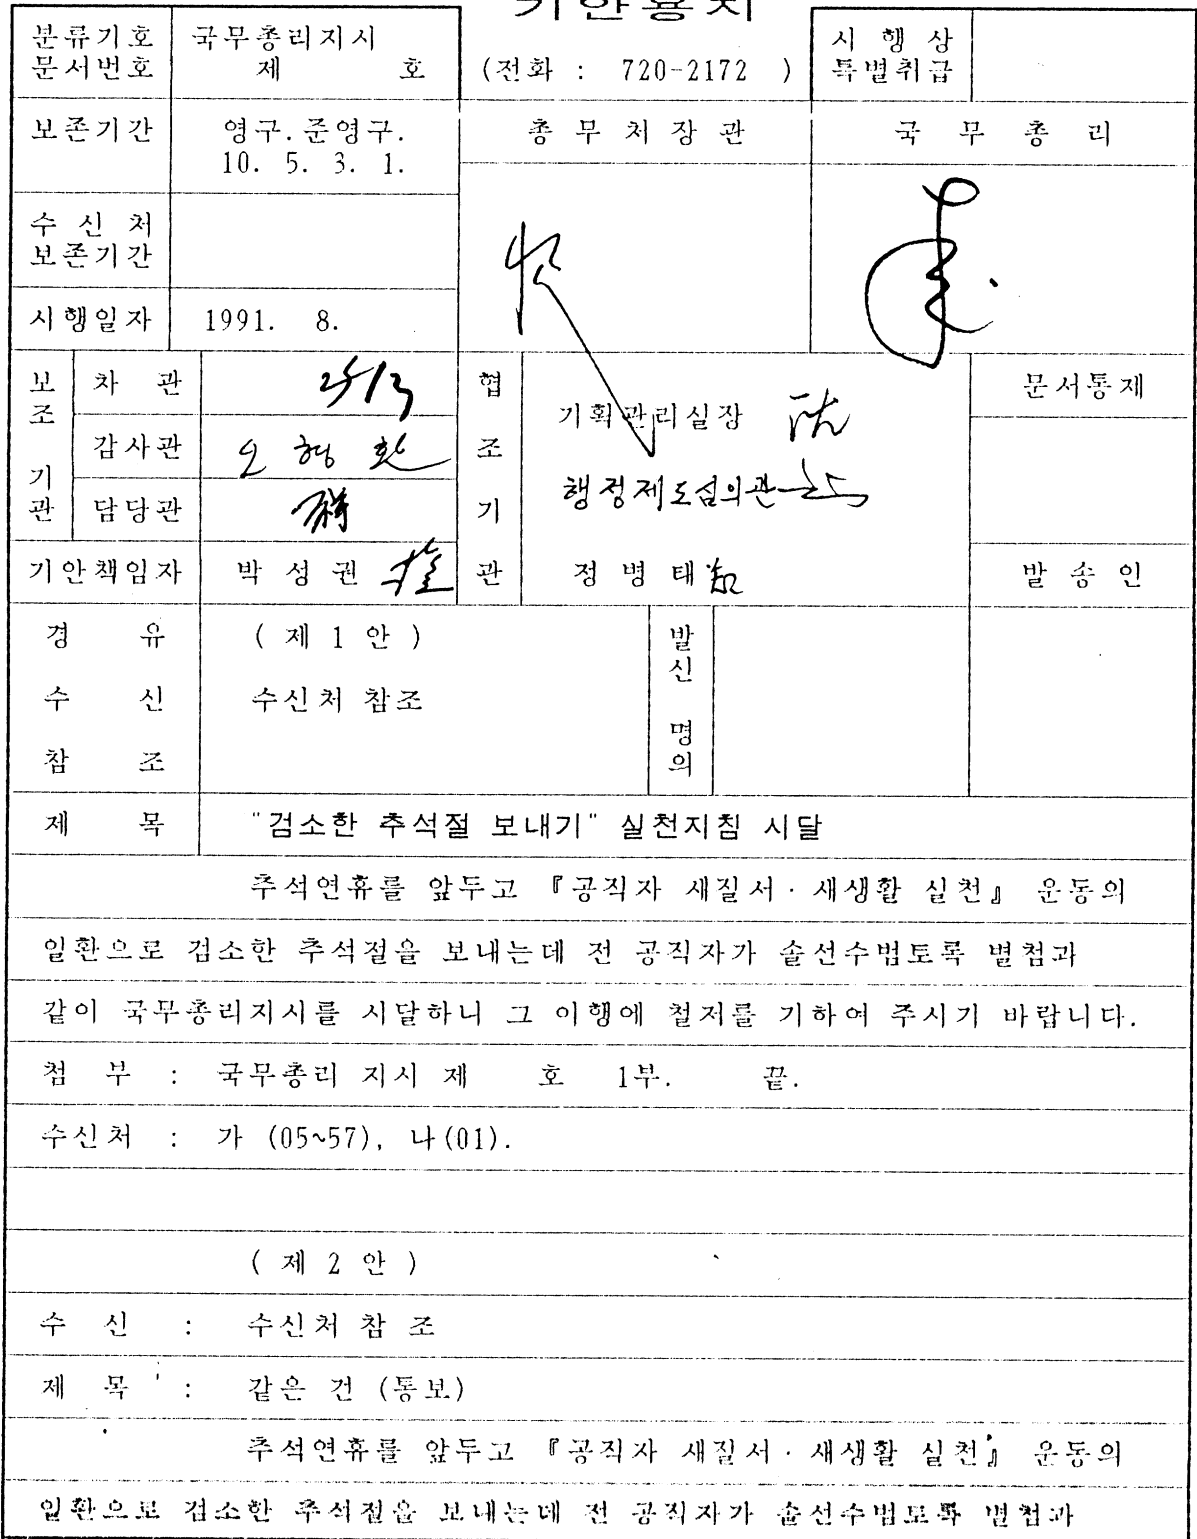 기안용지
분류기호 문서번호
국무총리지시
제 호
(전화 : 720-2172 )
시 행 상
특별취급
보존기간
영구. 준영구.
10. 5. 3. 1.
총 무 처 장 관
국 무 총 리
수 신 처
보존기간
시행일자
1991. 8.
보조기관
차 관
감사관
오 형 환
담당관
기안책임자
박 성 권
협조기관
기획관리실장
행정제도심의관
정 병 태
문서통제
발 송 인
경 유
( 제 1 안 )
수 신
수신처 참조
참 조
발신 명의
제 목
"검소한 추석절 보내기" 실천지침 시달
추석연휴를 앞두고 『공직자 새질서·새생활 실천』 운동의
일환으로 검소한 추석절을 보내는데 전 공직자가 솔선수범토록 별첨과
같이 국무총리지시를 시달하니 그 이행에 철저를 기하여 주시기 바랍니다.
첨 부 : 국무총리 지시 제 호 1부. 끝.
수신처 : 가 (05~57), 나(01).
( 제 2 안 )
수 신 : 수신처 참 조
제 목 : 같은 건 (통보)
추석연휴를 앞두고 『공직자 새질서·새생활 실천』 운동의
일환으로 검소한 추석절을 보내는데 전 공직자가 솔선수범토록 별첨과